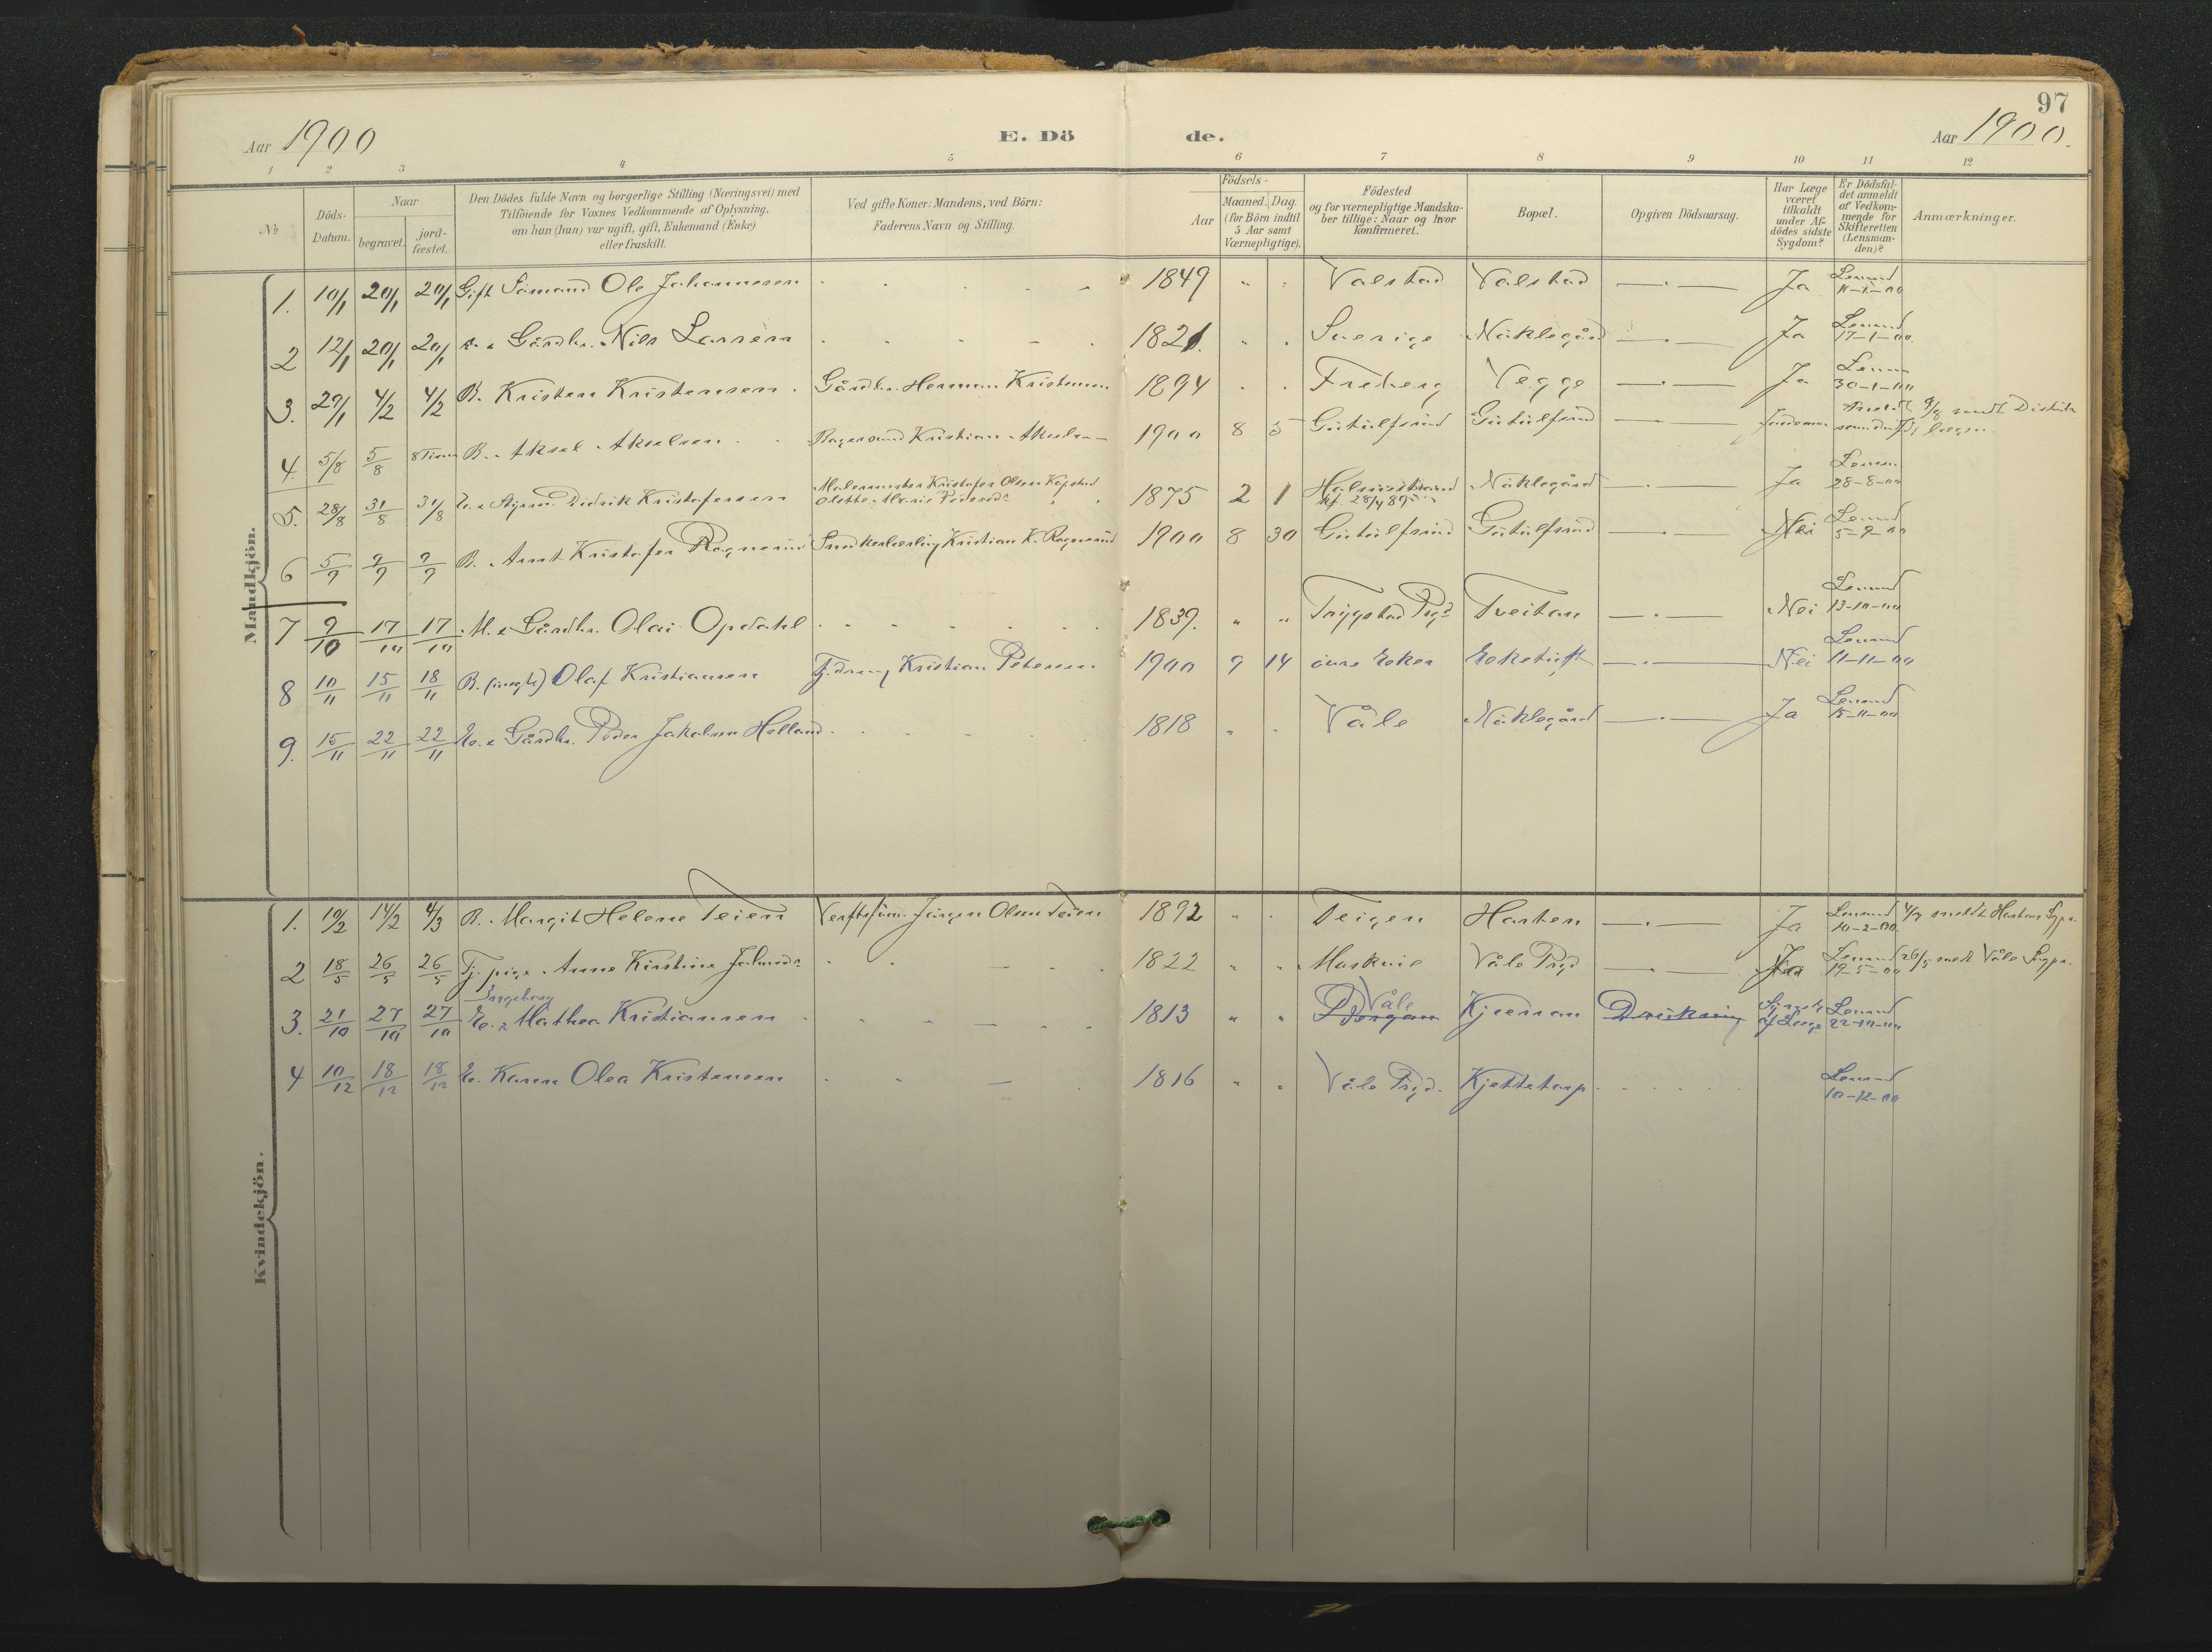 97
Aar 1900 E. Dö de. Aar 1900.
1 2 3 4 5 6 7 8 9 10 11 12
No
Döds-Datum.
Naar
begravet.
jord-fæstet.
Den Dödes fulde Navn og borgerlige Stilling (Næringsvei) med
Tilföiende for Voxnes Vedkommende af Oplysning,
om han (hun) var ugift, gift, Enkemand (Enke)
eller fraskilt.
Ved gifte Koner: Mandens, ved Börn:
Faderens Navn og Stilling.
Födsels-
Aar
Maaned. Dag.
(for Börn indtil
5 Aar samt
Værnepligtige).
Födested
og for værnepligtige Mandska-
ber tillige: Naar og hvor
konfirmeret.
Bopæl.
Opgiven Dödsaarsag.
Har Læge
været
tilkaldt
under Af-
dödes sidste
Sygdom?
Er Dödsfal-
det anmeldt
af Vedkom-
mende for
Skifteretten
(Lensman-
den)?
Anmærkninger.
Mandkjön.
1. 10/1 20/1 20/1 Gift Sömand Ole Johannesen 1849 " " Valstad Valstad Ja Lensmd 11-1-00
2 12/1 20/1 20/1 Gårdbr. Nils Larsen 1821. " " Sverige Nöklegård Ja Lensmd 17-1-00
3. 27/1 4/2 4/2 B. Kristen Kristensen Gårdbr. Herman Kristensen 1894 Freberg Vegge Ja Lensm 30-1-00
4. 5/8 5/8 B. Aksel Akselsen Kristian Akselsen 1900 8 5 Gutulfsrud Gutulfsrud 9/8 medt Distrikts lægen
5. 28/8 31/8 31/8 E. Styrm. Didrik Kristofersen Malermester Kristofer Olsen
Olette Marie 1875 2 1 Holmestrand Nöklegård Ja Lensm 28-8-00
6 5/9 9/9 9/9 B. Arnt Kristofer Ragnerud Snedkerlærling Kristian K. Ragnerud 1900 8 30 Gutulfsrud Gutulfsrud Nei Lensmd 5-9-00
7 9/10 17/10 17/10 M. Gårdbr. Olai Opdahl 1839. " " Trygstad Prgd Tveitan Nei Lensmd 13-10-00
8 10/11 15/11 18/11 B. (uægte) Olaf Kristiansen Tj.dreng Kristian Petersen 1900 9 14 övre Eker Eketuft Nei Lensmd 11-11-00
9. 15/11 22/11 22/11 E. Gårdbr. Peder Jakobsen Helland 1818 " " Våle Nöklegård Ja Lensmd 15-11-00
Kvindekjön.
1. 10/2 14/2 4/3 B. Margit Helene Teien Verftstöm. Jörgen Olsen Teien 1892 " " Teigen Horten Ja Lensmd 10-2-00 4/3 meldt Hortens Sgpr.
2 18/5 26/5 26/5 Tj.pige Anne Kirstine Johnsdr 1822 " " Våle Prgd Lensmd 19-5-00 26/5 medt Våle Sgpr.
3. 21/10 27/10 27/10 E. Ingeborg Mathea Kristiansen 1813 " " Våle Kjæran af Læge Lensmd 22-10-00
4 10/12 18/12 18/12 E. Karen Olea Kristensen 1816 " " Våle Prgd. Kjettetorp Lensmd 10-12-00